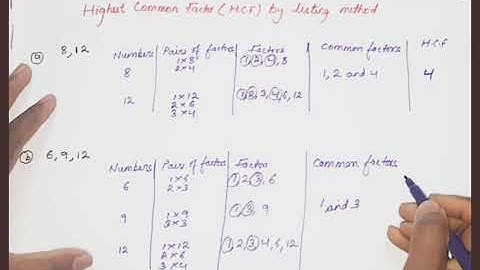 Highest Common Factor (H.C.F) by listing method
(a) 8, 12
Numbers Pairs of factors Factors Common factors H.C.F
8 1 x 8 1, 2, 4, 8 1, 2 and 4 4
2 x 4
12 1 x 12 1, 2, 3, 4, 6, 12
2 x 6
3 x 4
(b) 6, 9, 12
Numbers Pairs of factors Factor Common factors
6 1 x 6 1, 2, 3, 6
2 x 3
9 1 x 9 1, 3, 9 1 and 3
3 x 3
12 1 x 12 1, 2, 3, 4, 6, 12
2 x 6
3 x 4